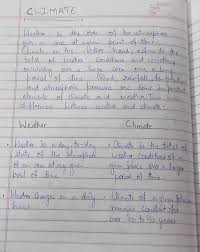 CLIMATE
Weather is the state of the atmosphere
over an area at a given point of time.
Climate on the other hand, refers to the
total of weather conditions and variations
over a large area over a long
period of time. rainfall,
and atmospheric pressure are some important
elements of climate and weather.
difference between weather and climate:-
Weather Climate
• Weather is a day-to-day • Climate is the total of
state of the atmosphere weather conditions of a
of an area at any given given place over a longer
point of time. period of time.
• Weather changes on a daily • Climate of a given place
basis. remains constant for
over 30 to 50 years